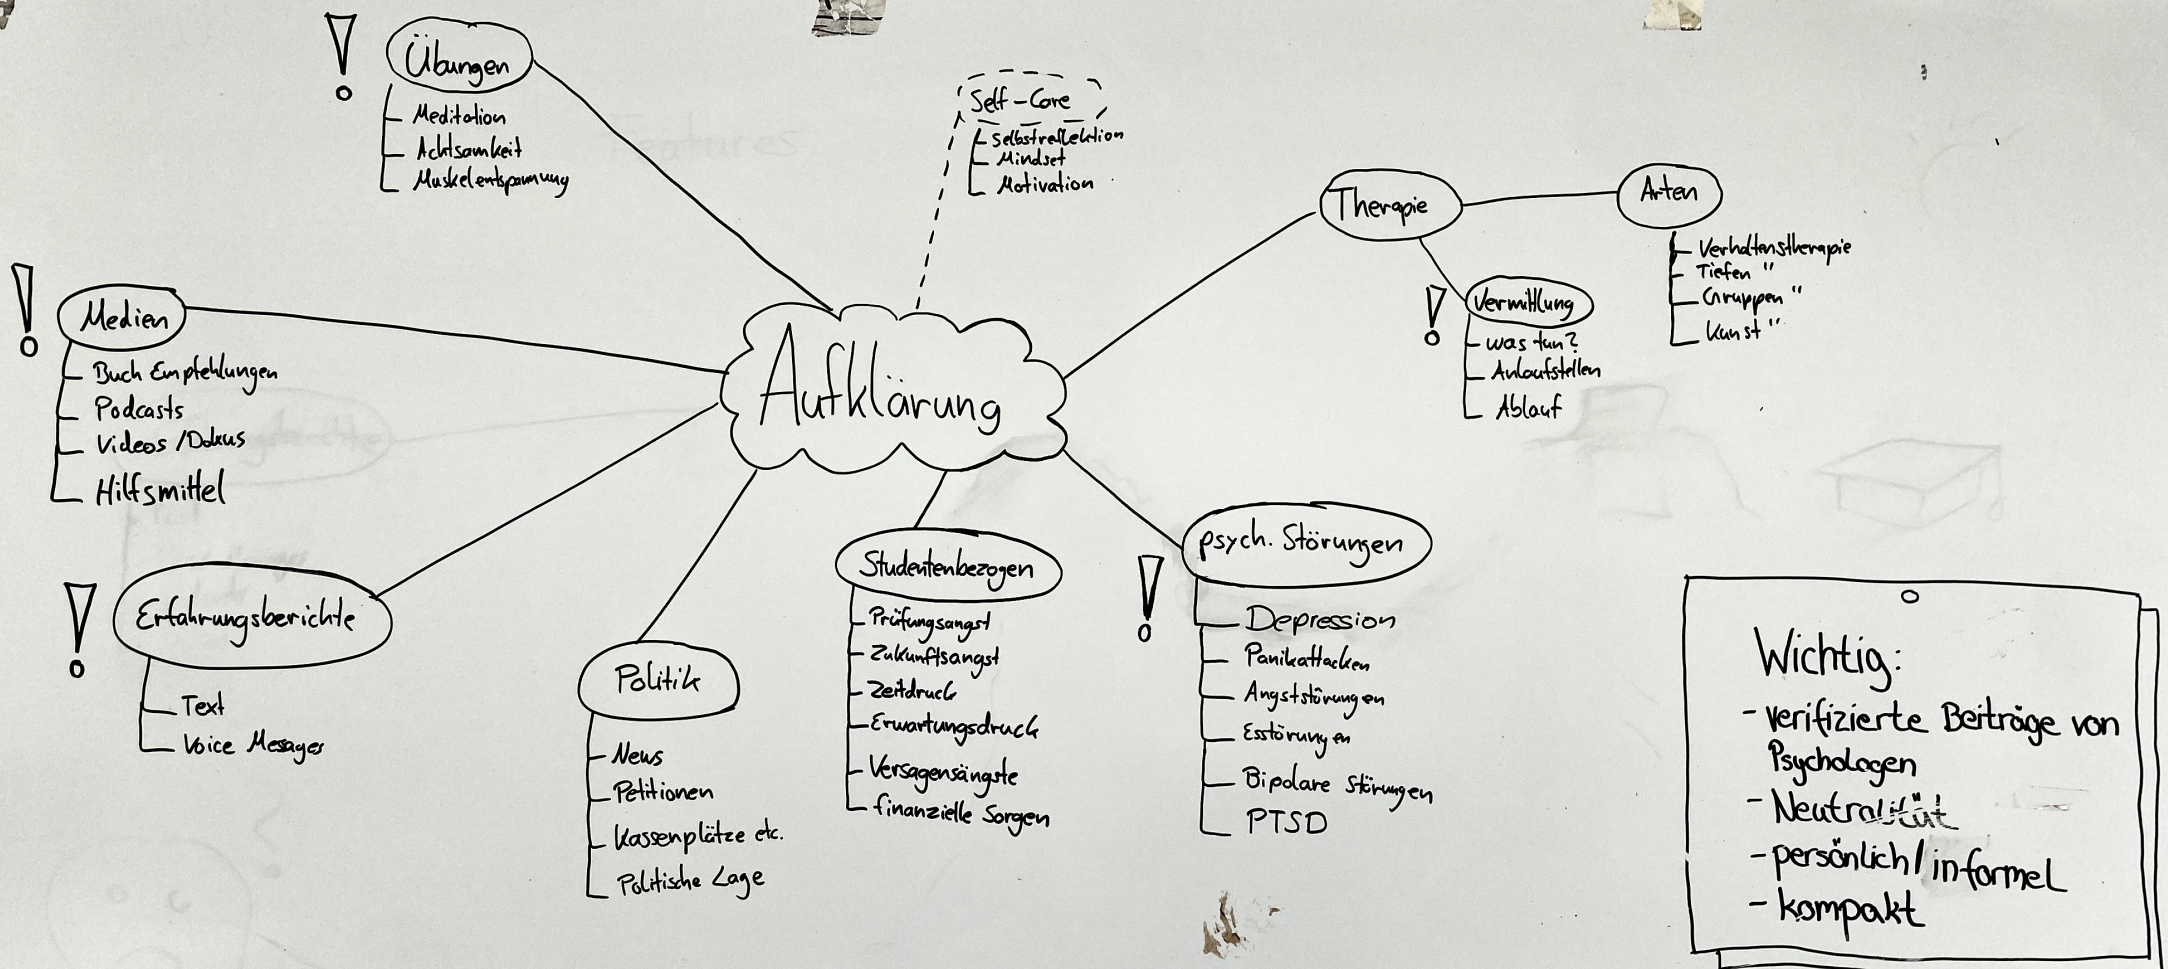 Übungen
Meditation
Achtsamkeit
Muskelentspannung
Features
Self-Care
Selbstreflektion
Mindset
Motivation
Therapie
Arten
Verhaltenstherapie
Tiefen "
Gruppen "
Kunst "
Vermittlung
was tun?
Anlaufstellen
Ablauf
Medien
Buch Empfehlungen
Podcasts
Videos /Dokus
Hilfsmittel
Aufklärung
Erfahrungsberichte
Text
Voice Mesages
Politik
News
Petitionen
Kassenplätze etc.
Politische Lage
Studentenbezogen
Prüfungsangst
Zukunftsangst
Zeitdruck
Erwartungsdruck
Versagensängste
finanzielle Sorgen
psych. Störungen
Depression
Panikattacken
Angststörungen
Esstörungen
Bipolare Störungen
PTSD
Wichtig:
- verifizierte Beiträge von
Psychologen
- Neutralität
- persönlich/informel
- kompakt